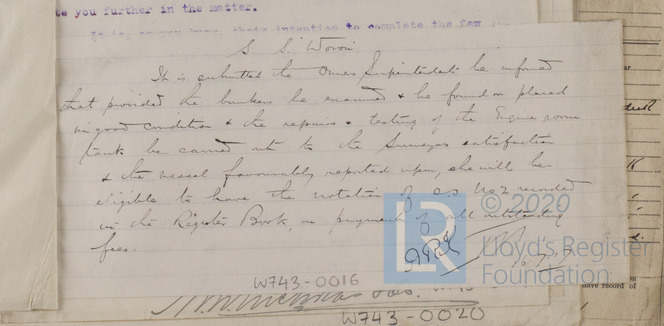 te you further in the matter.
It is, as you know, their intention to complete the few
S. S. "Woron"
It is submitted the Owners Superintendent be informed
that provided the bunkers be examined & be found or placed
in good condition & the repairs & testing of the Engine room
tank be carried out to the Surveyors satisfaction
& the vessel favourably reported upon, she will be
eligible to have the notation of s.s. No 2 recorded
in the Register Book, on payment of all outstanding
fees.
© 2020
LR
Lloyd's Register
Foundation
W743-0016
W743-0020
have record of